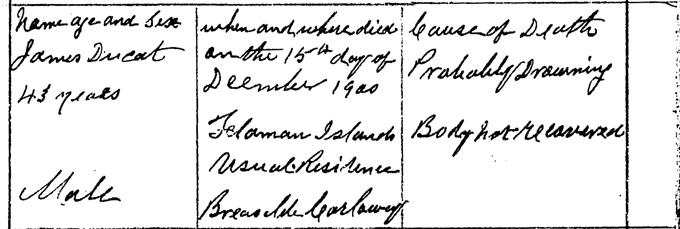 Name age and Sex
James Ducat
43 years
Male
when and where died
on the 15th day of
December 1900
Flaman Islands
Usual Residence
Breasclete Carloway
Cause of Death
Probably Drowning
Body not recovered